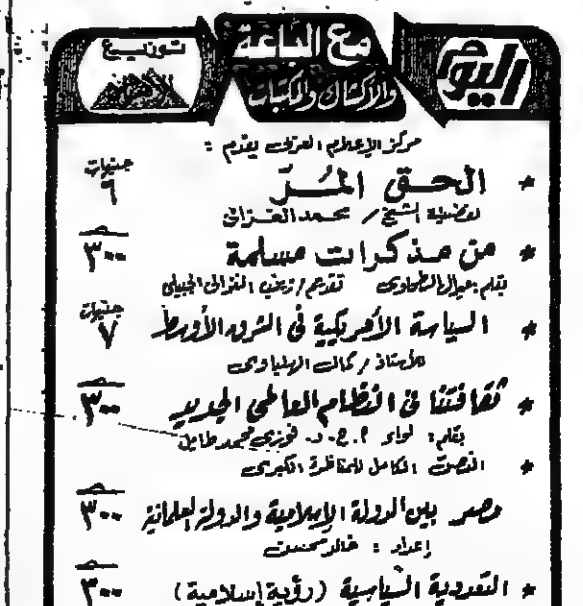 اليوم
مع الباعة
والأكشاك والمكتبات
توزيع
الأهرام
مركز الإعلام العربى يقدم :
* الحق المُرّ
جنيهات ٦
لفضيلة الشيخ / محمد الغزالى
* من مذكرات مسلمة
٣٠٠
بقلم : الطحاوى تقديم / زينب الغزالى الجبيلى
* السياسة الأمريكية فى الشرق الأوسط
جنيهات ٧
للأستاذ / كمال الهلباوى
* ثقافتنا فى النظام العالمى الجديد
٣٠٠
بقلم : لواء أ . ح . د . فوزى محمد طايل
* النص الكامل للمناظرة الكبرى
مصر بين الدولة الإسلامية والدولة العلمانية
٣٠٠
إعداد : خالد محسن
* التعددية السياسية ( رؤية إسلامية )
٣٠٠